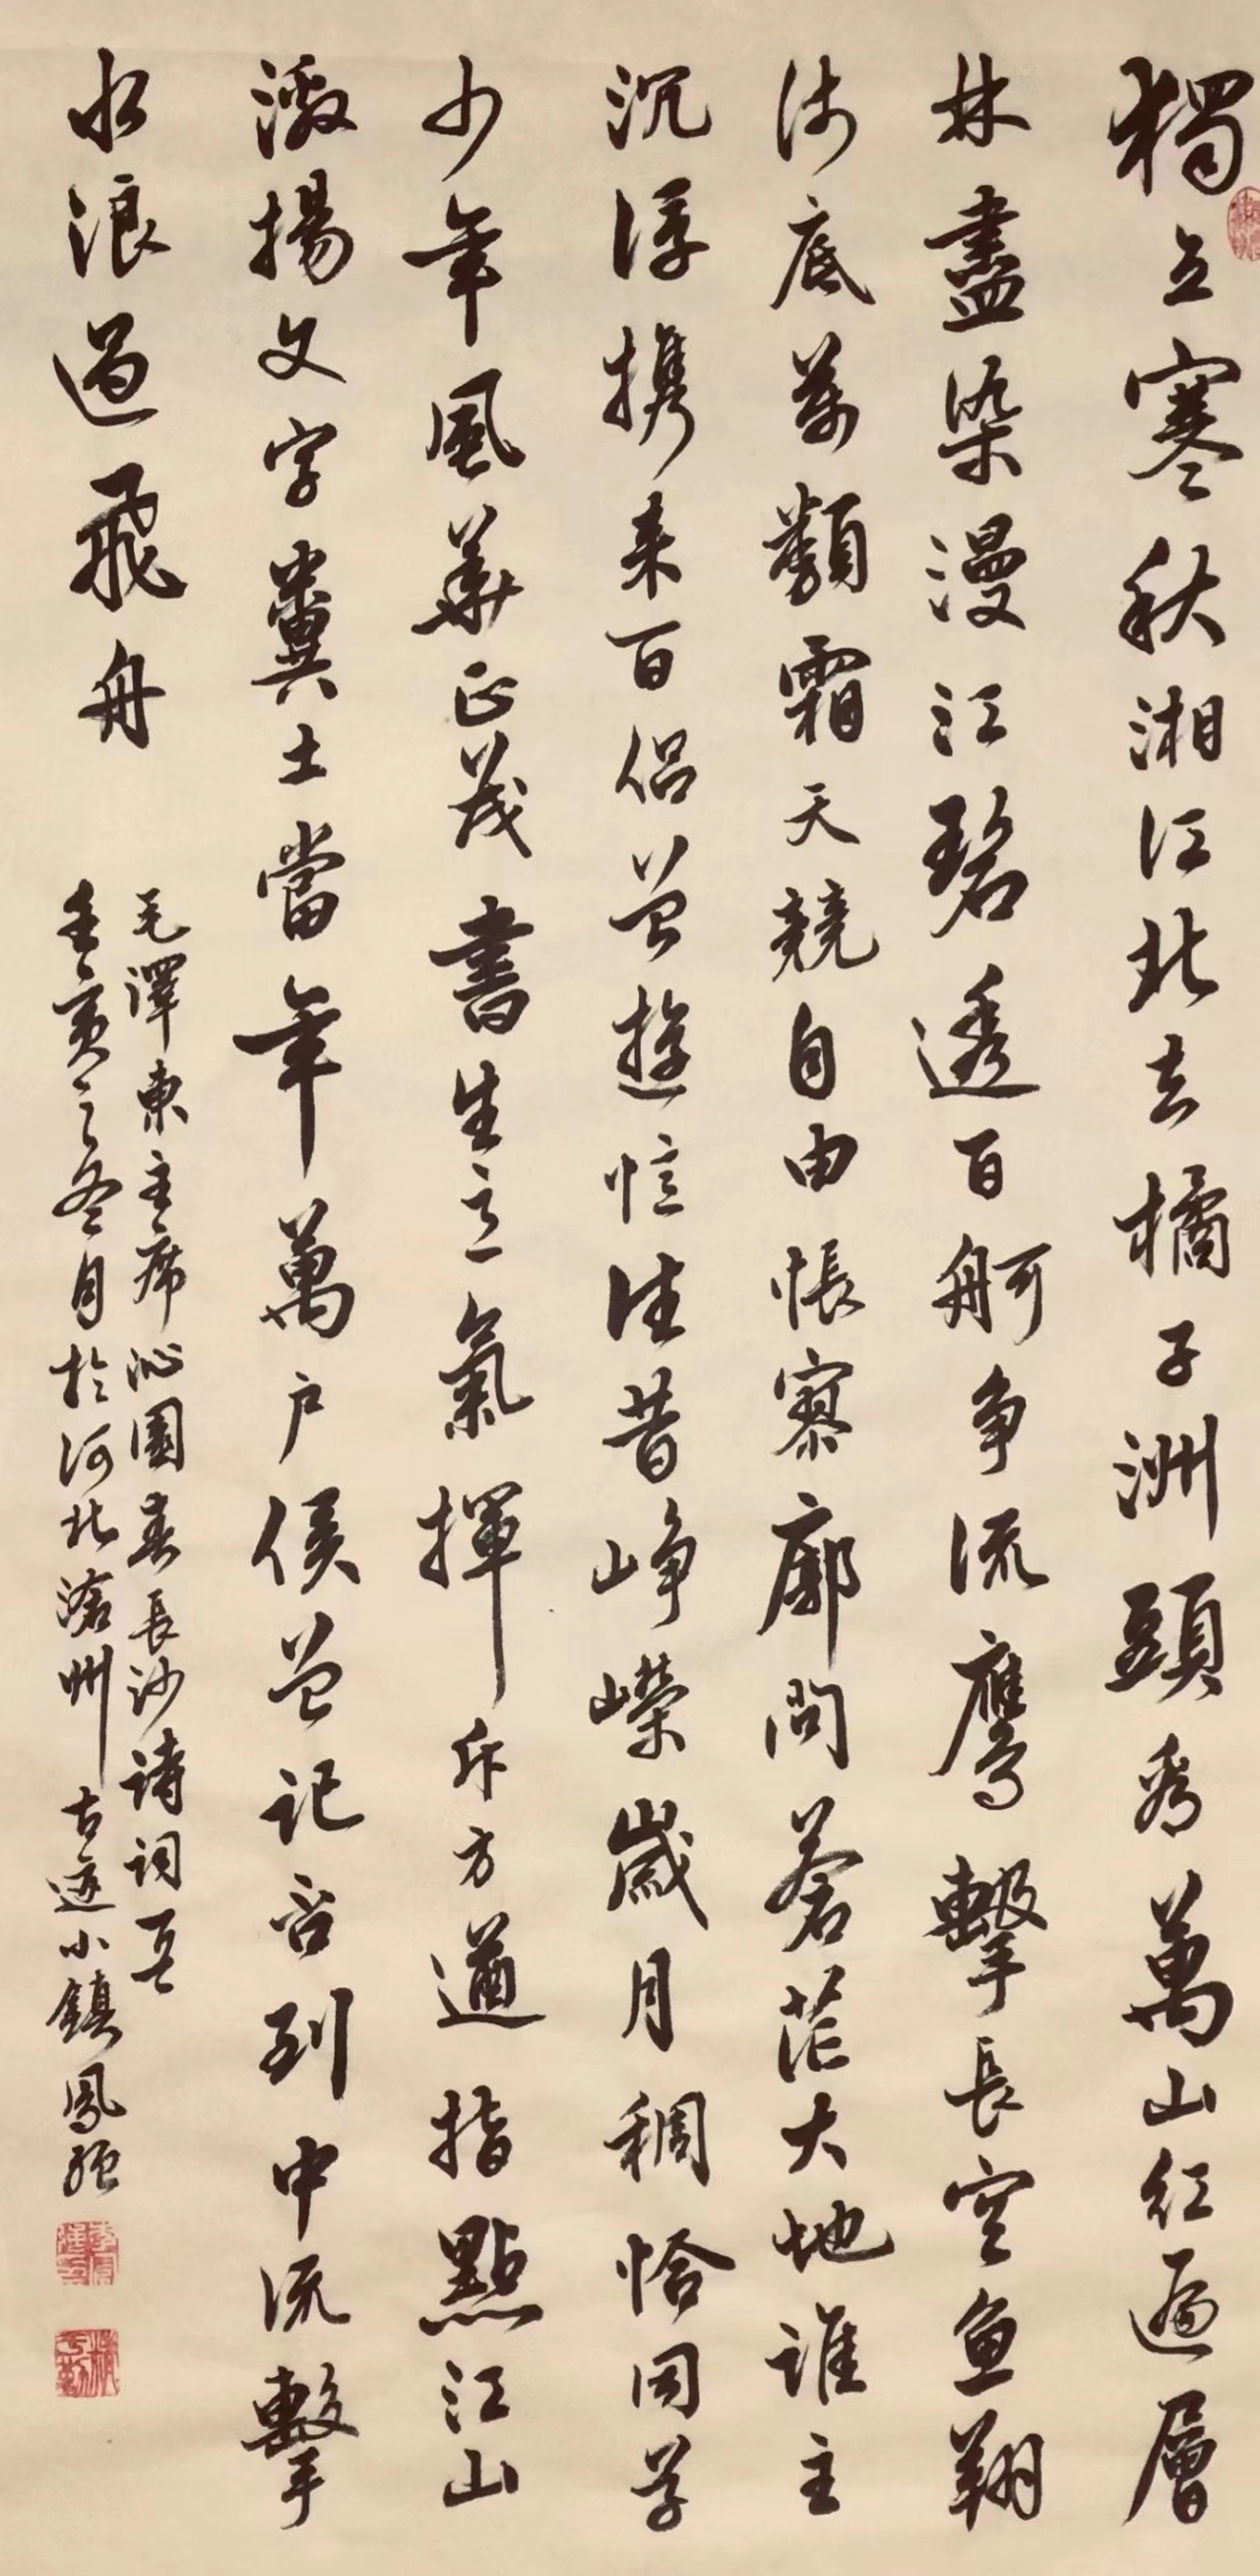 獨立寒秋湘江北去橘子洲頭看萬山红遍層
林盡染漫江碧透百舸争流鹰擊長空魚翔
浅底萬類霜天競自由悵寥廓問蒼茫大地誰主
沉浮携来百侣曾遊憶往昔峥嶸歲月稠恰同学
少年風華正茂書生意氣揮斥方遒指點江山
激揚文字糞土當年萬户侯曾記否到中流擊
水浪遏飛舟
毛澤東主席沁園春長沙詩詞一首
壬寅之冬月於河北滄州古运小鎮鳳强